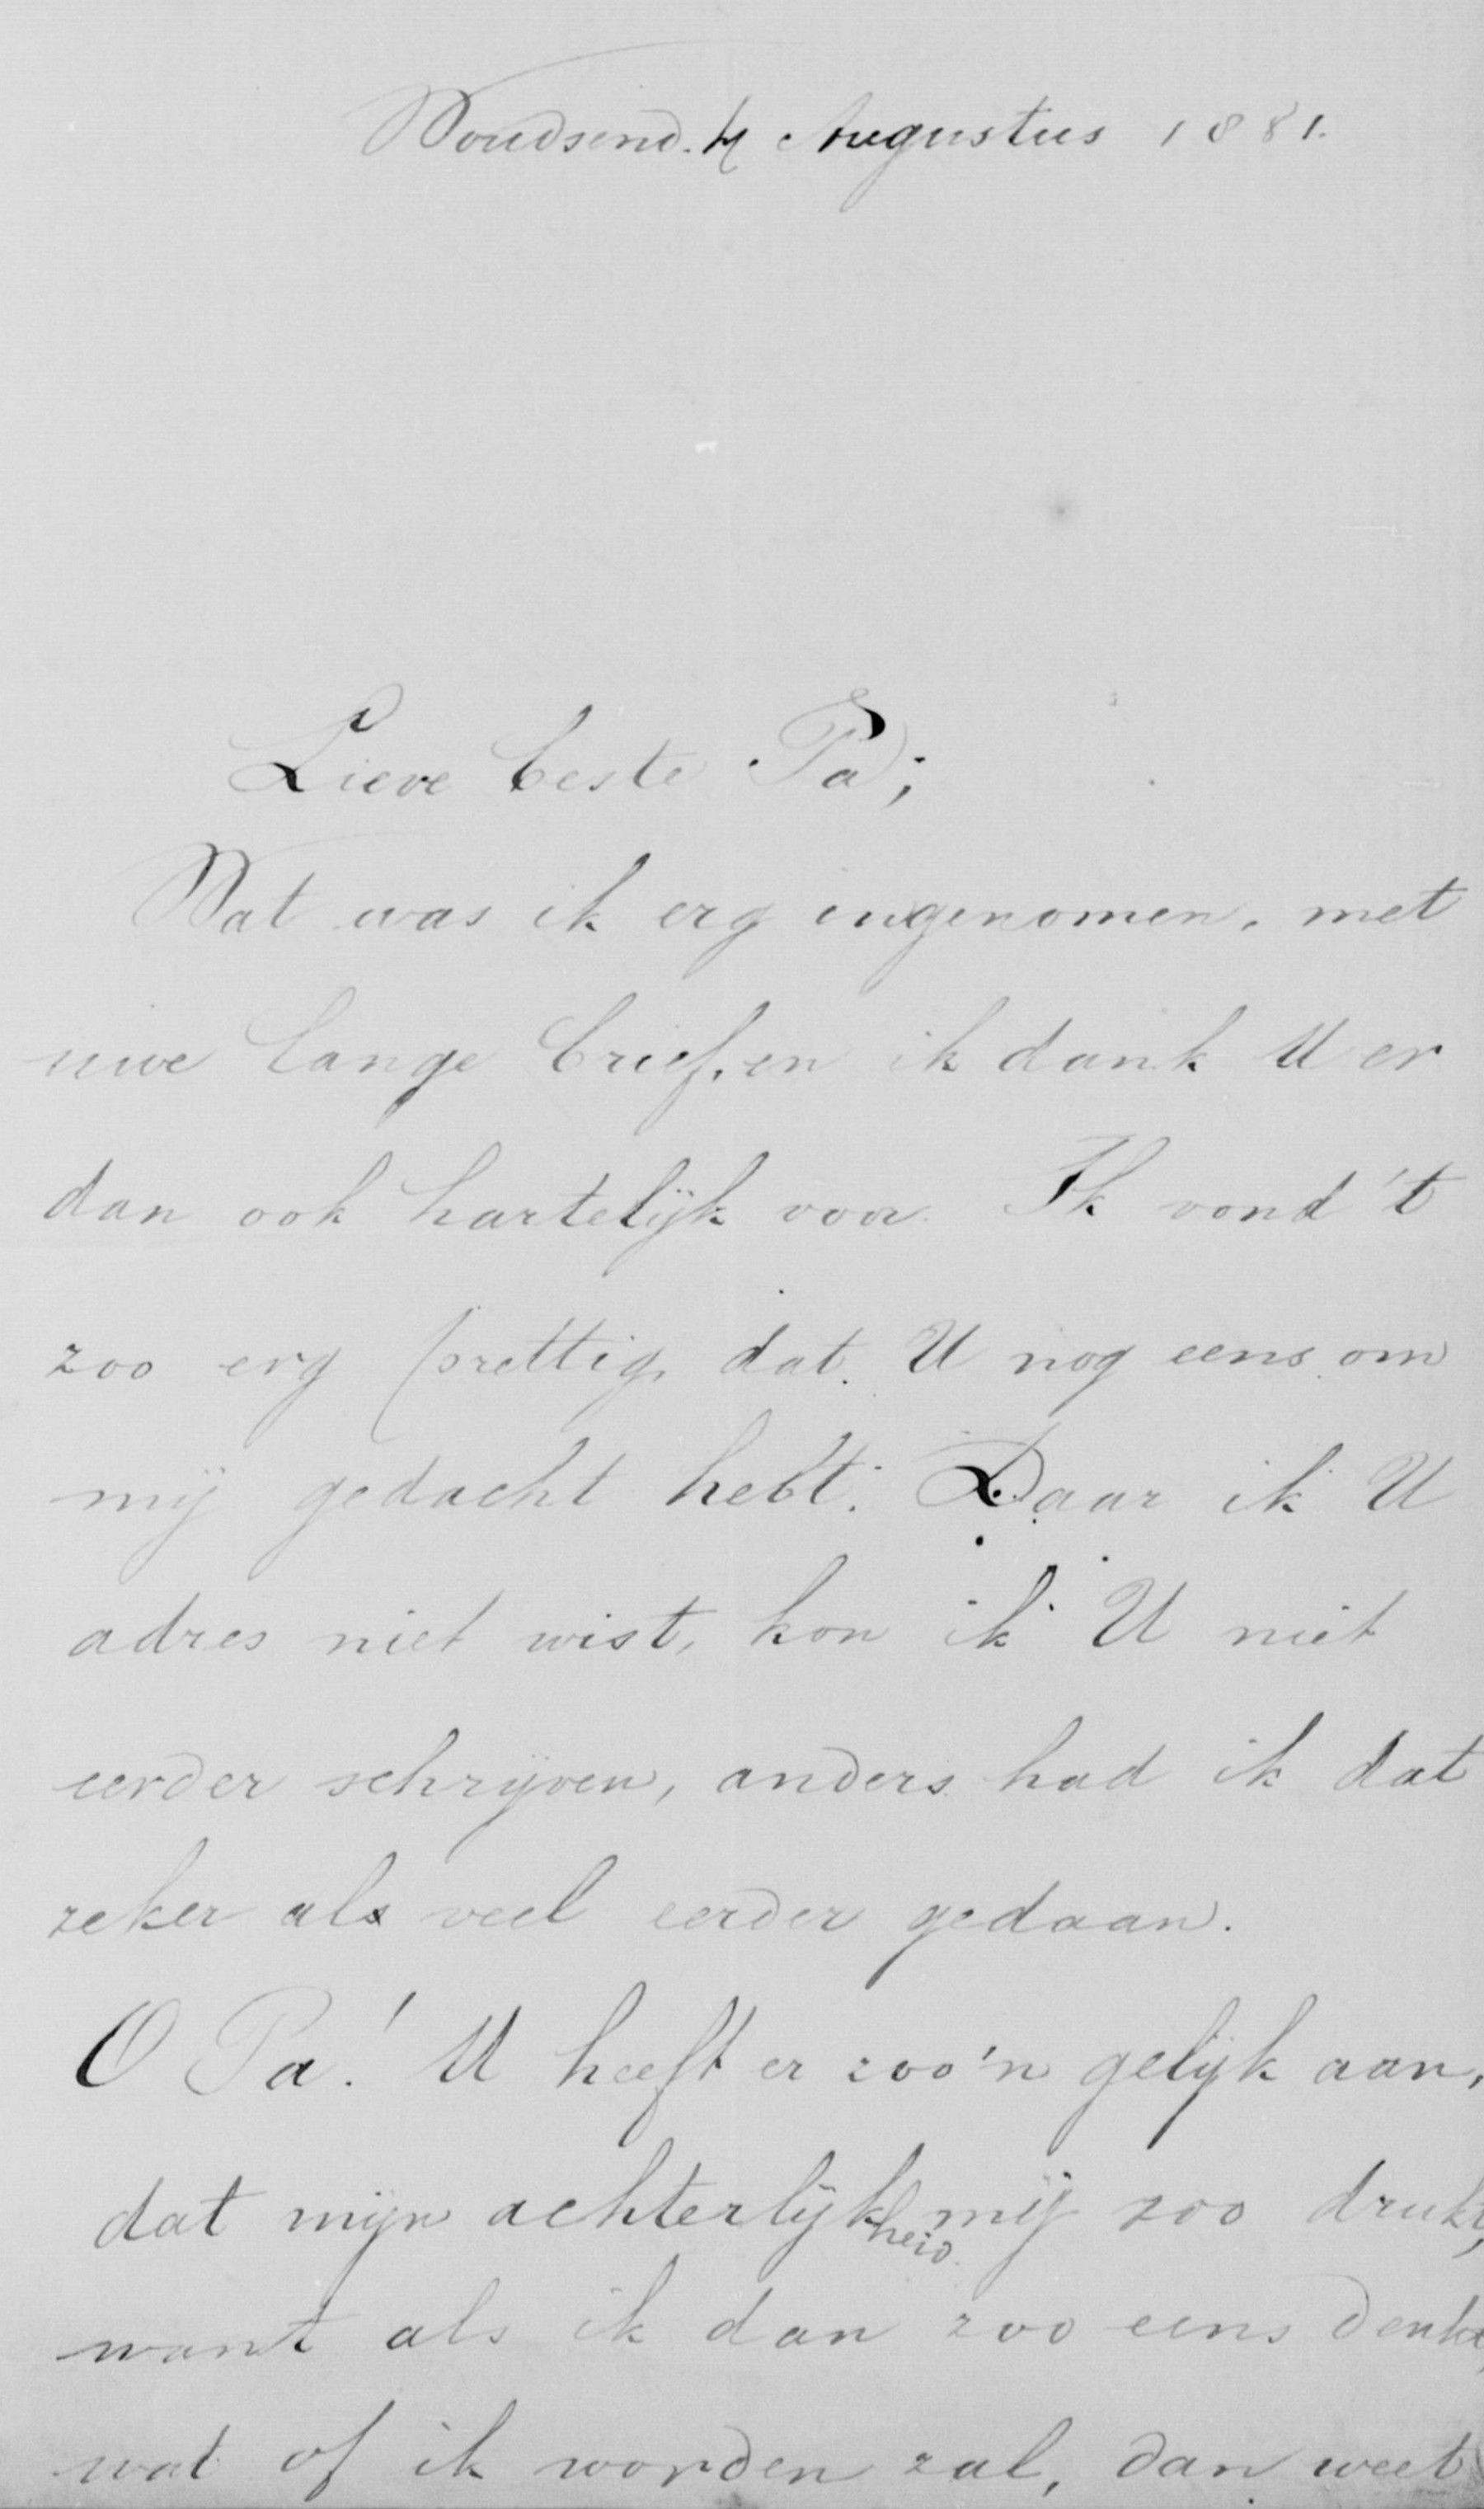 Woudsend. 4 Augustus 1881.
Lieve beste Pa;
Wat was ik erg ingenomen, met
uwe lange brief, en ik dank U er
dan ook hartelijk voor. Ik vond 't
zoo erg prettig, dat U nog eens om
mij gedacht hebt. Daar ik U
adres niet wist, kon ik U niet
eerder schrijven, anders had ik dat
zeker als veel eerder gedaan.
O Pa! U heeft er zoo'n gelijk aan,
dat mijn achterlijkheid mij zoo drukt,
want als ik dan zoo eens denk,
wat of ik worden zal, dan weet